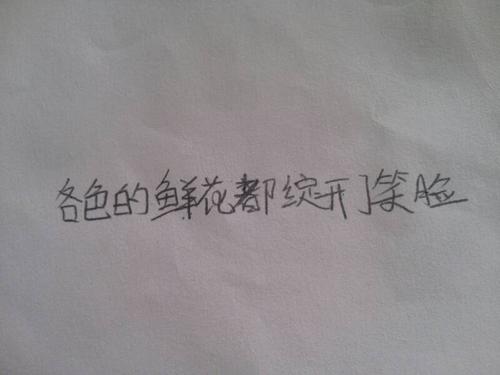 各色的鲜花都绽开了笑脸